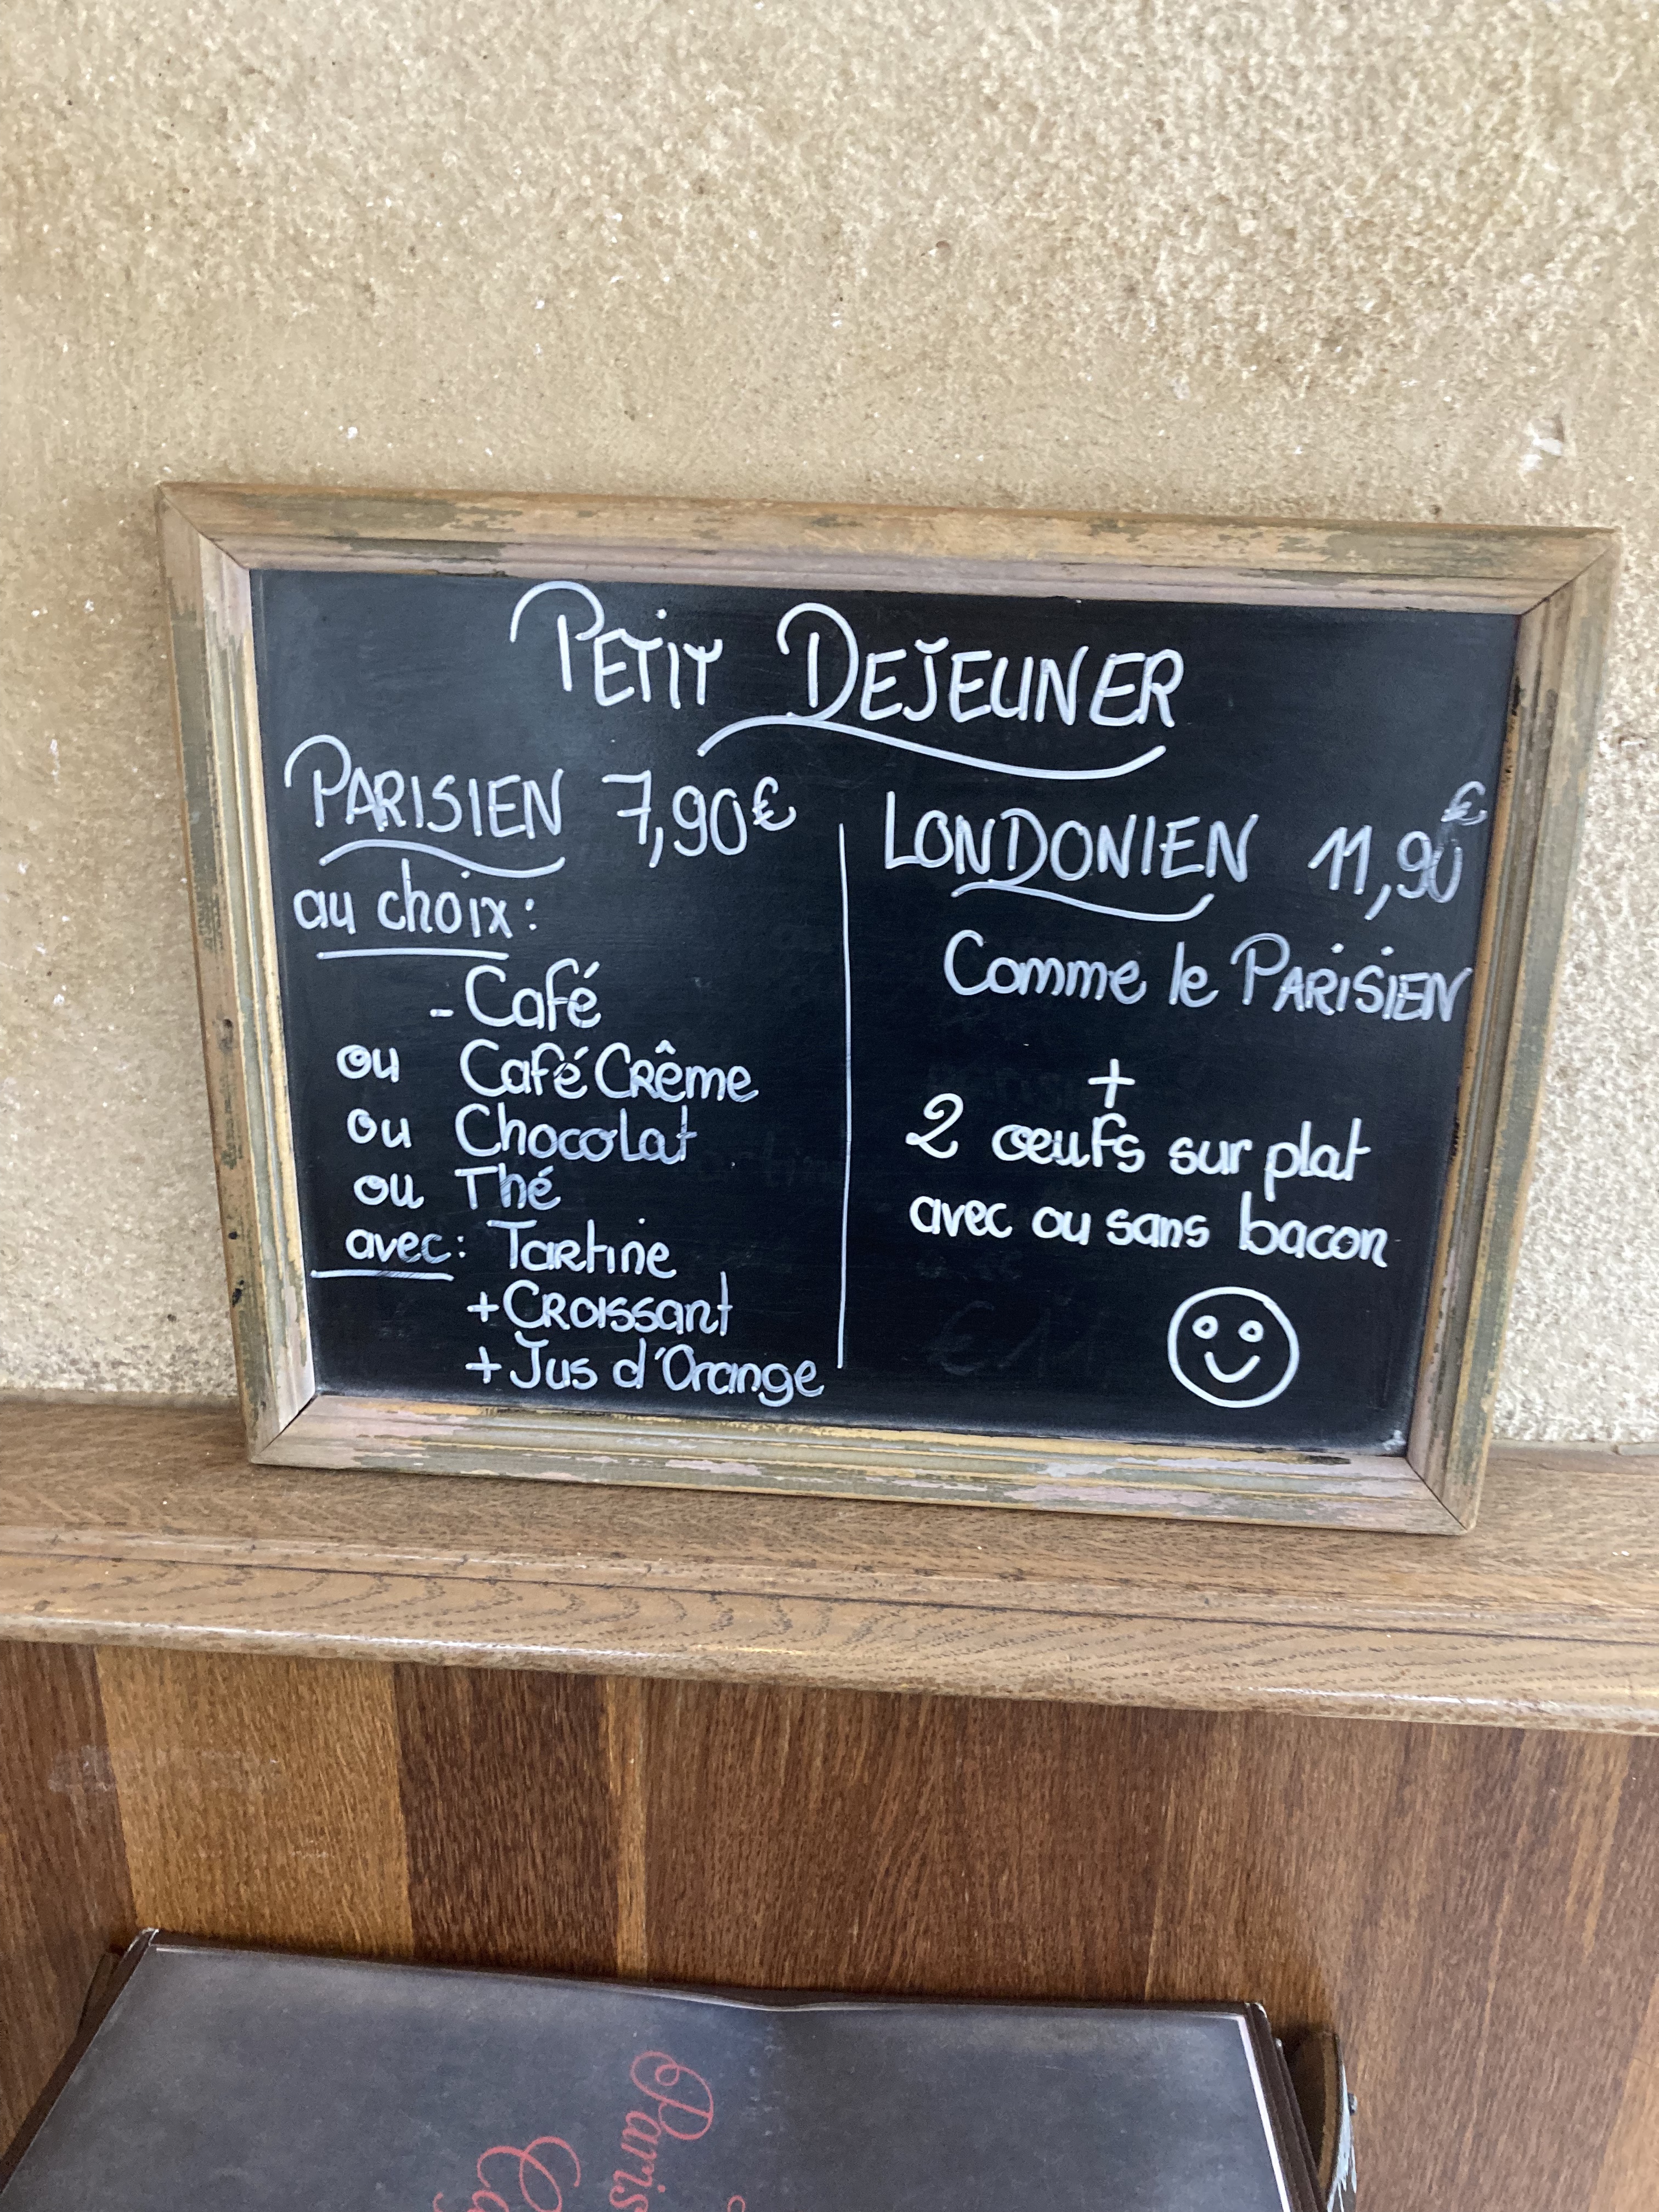 PETIT DEJEUNER
PARISIEN 7,90€
au choix:
- Café
ou Café Crême
ou Chocolat
ou Thé
avec: Tartine
+ Croissant
+ Jus d'Orange
LONDONIEN 11,90€
Comme le PARISIEN
+
2 œufs sur plat
avec ou sans bacon
Paris